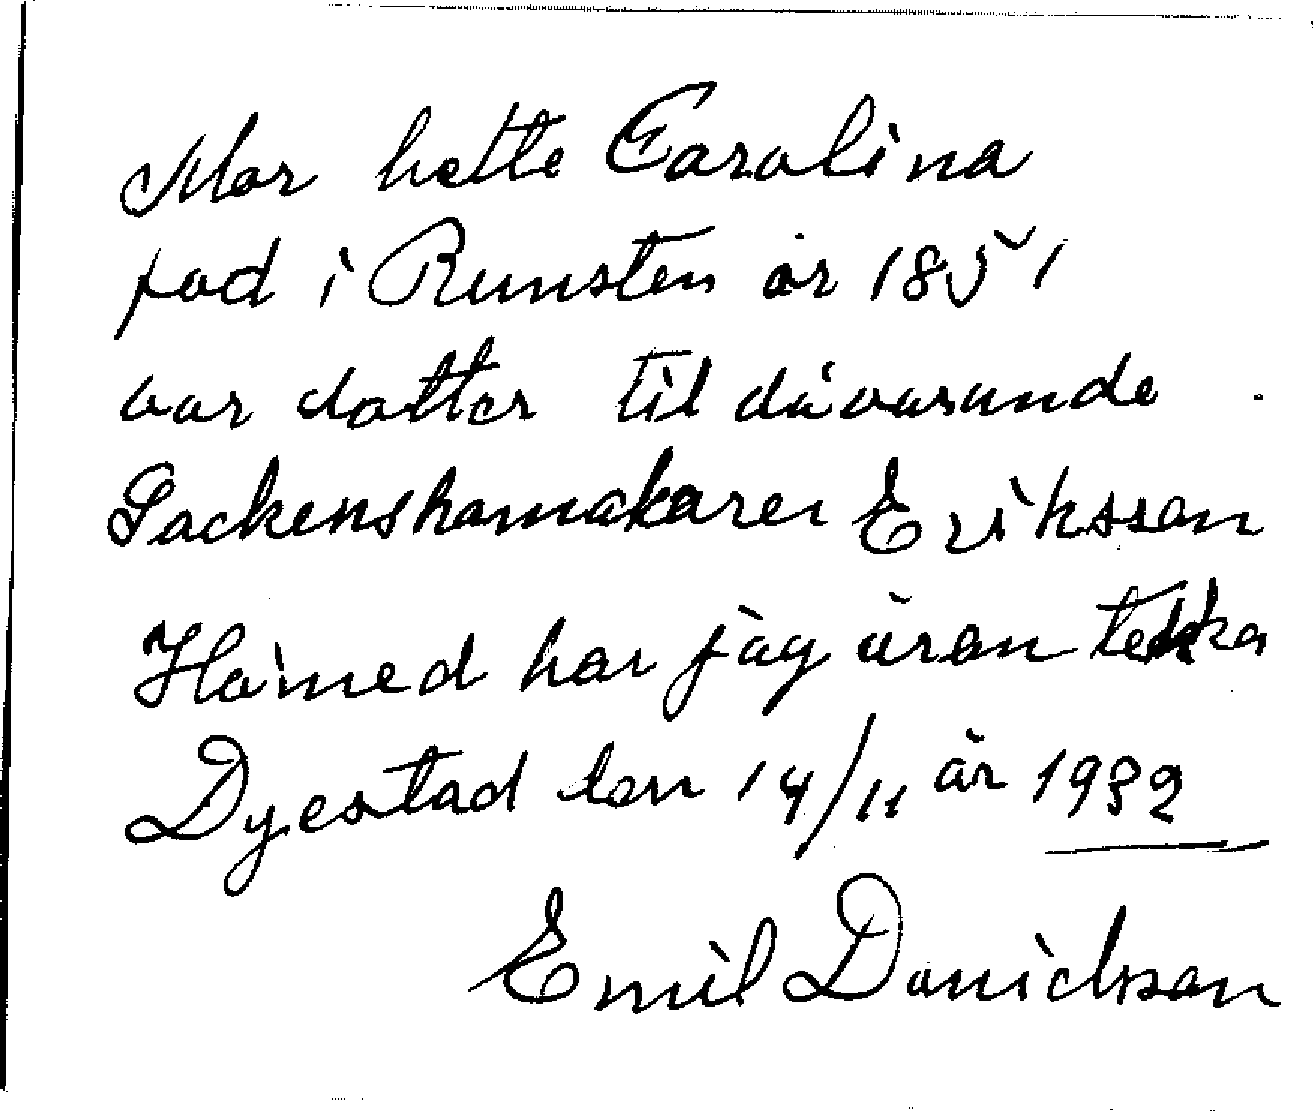 Mor hette Carolina
fod i Runsten år 1851
var dotter til dåvarande
Sockenskomakaren Eriksson
Hämed har jag äran tekka
Dyestad den 14/11 år 1932
Emil Danielsson